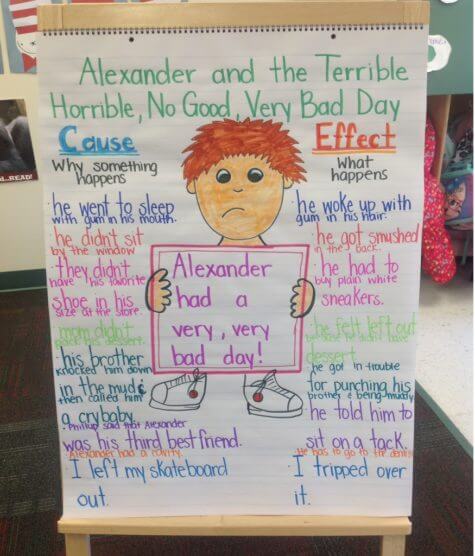 Alexander and the Terrible
Horrible, No Good, Very Bad Day
Cause
Why something
happens
· he went to sleep
with gum in his mouth.
· he didn't sit
by the window
· they didn't
have his favorite
shoe in his
size at the store.
· mom didn't
pack his dessert.
· his brother
knocked him down
in the mud &
then called him
a crybaby.
· Phillip said that Alexander
was his third best friend.
· Alexander had a cavity.
· I left my skateboard
out.
Alexander
had a
very, very
bad day!
Effect
What
happens
· he woke up with
gum in his hair.
· he got smushed
in the back.
· he had to
buy plain white
sneakers.
· he felt left out
because he didn't have
dessert
· he got in trouble
for punching his
brother & being muddy
· he told him to
sit on a tack.
· He has to go to the dentist
· I tripped over
it.
...READ!